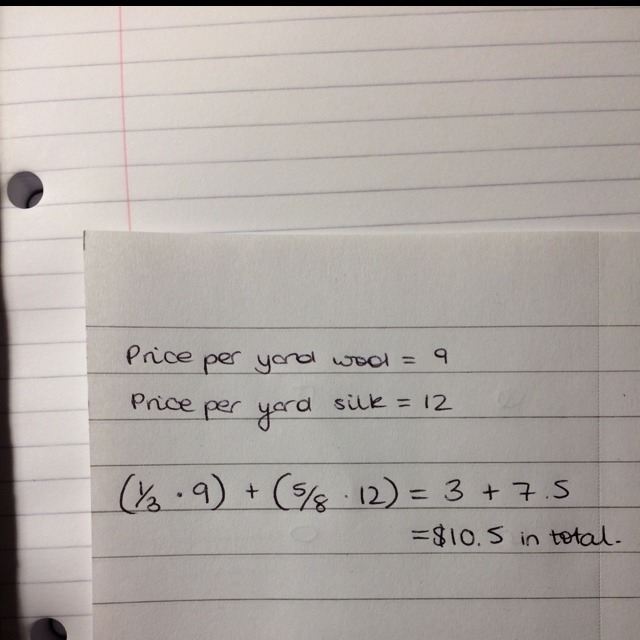 Price per yard wool = 9
Price per yard silk = 12
(1/3 · 9) + (5/8 · 12) = 3 + 7.5
= $10.5 in total.